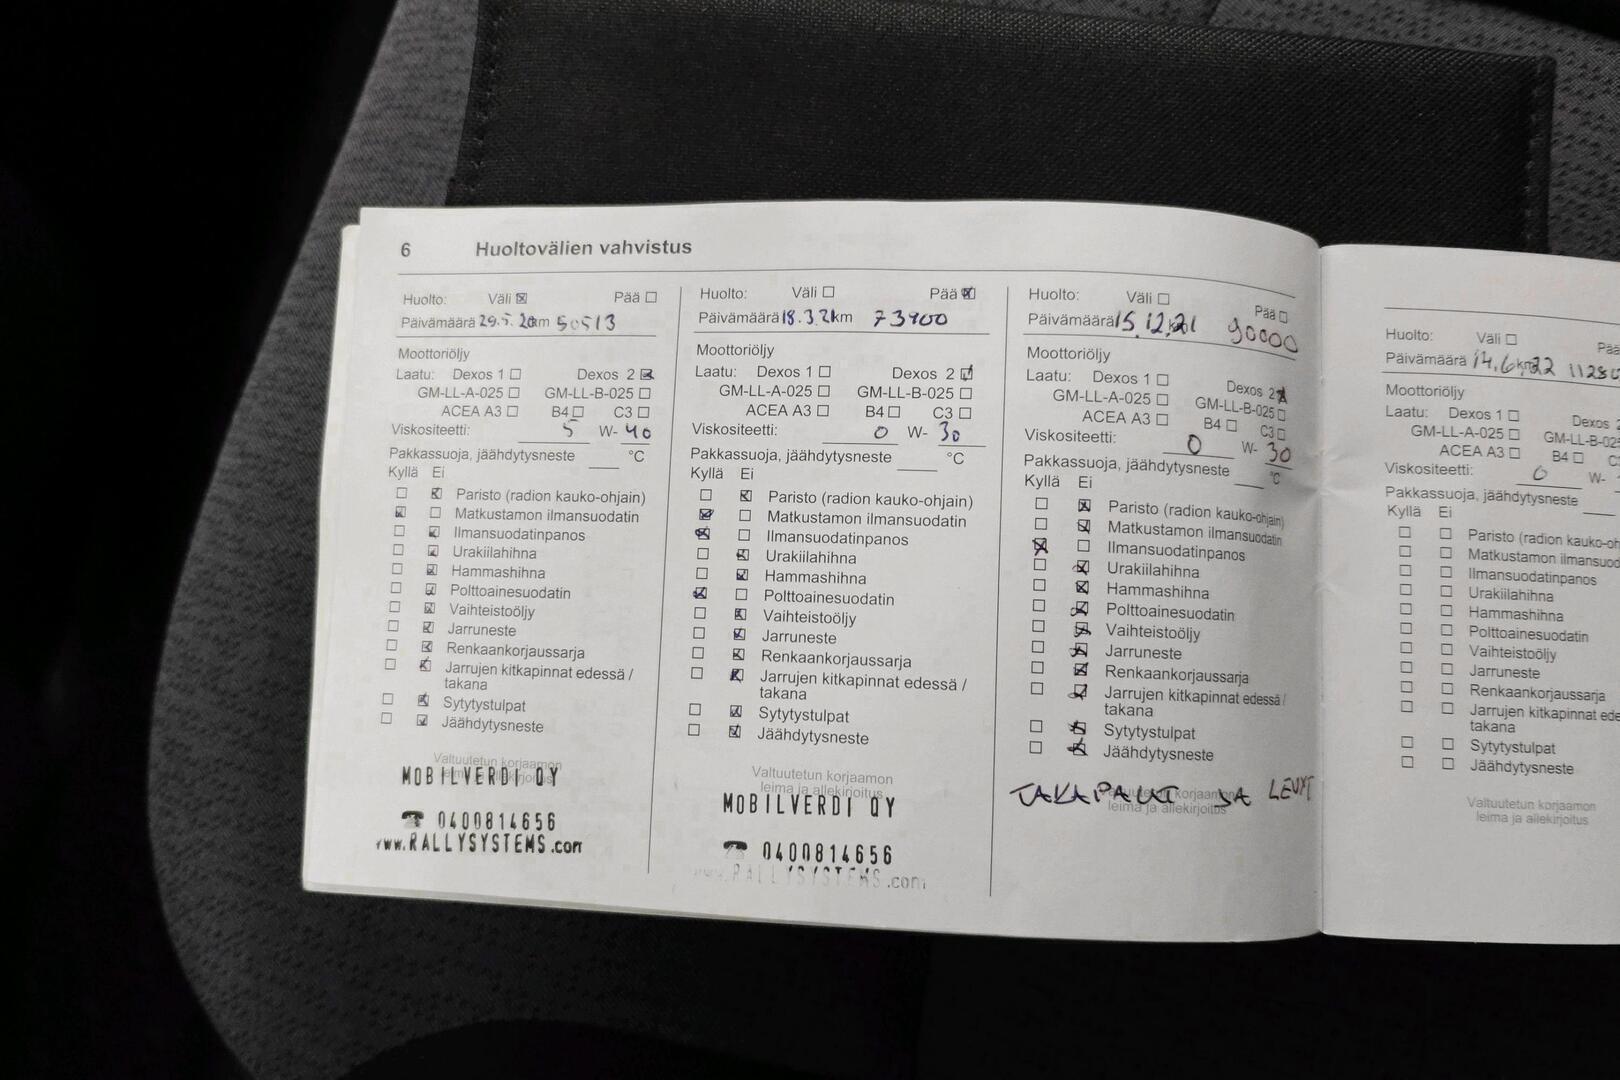 6 Huoltovälien vahvistus
Huolto: Väli ☒ Pää ☐
Päivämäärä 29.5.20 km 50513
Moottoriöljy
Laatu: Dexos 1 ☐ Dexos 2 ☒
GM-LL-A-025 ☐ GM-LL-B-025 ☐
ACEA A3 ☐ B4 ☐ C3 ☐
Viskositeetti: 5 W- 40
Pakkassuoja, jäähdytysneste ___ °C
Kyllä Ei
☐ ☒ Paristo (radion kauko-ohjain)
☒ ☐ Matkustamon ilmansuodatin
☐ ☒ Ilmansuodatinpanos
☐ ☒ Urakiilahihna
☐ ☒ Hammashihna
☐ ☒ Polttoainesuodatin
☐ ☒ Vaihteistoöljy
☐ ☒ Jarruneste
☐ ☒ Renkaankorjaussarja
☐ ☒ Jarrujen kitkapinnat edessä /
takana
☐ ☒ Sytytystulpat
☐ ☒ Jäähdytysneste
Valtuutetun korjaamon
leima ja allekirjoitus
MOBILVERDI OY
☎ 0400814656
www.RALLYSYSTEMS.com
Huolto: Väli ☐ Pää ☒
Päivämäärä 18.3.21 km 73400
Moottoriöljy
Laatu: Dexos 1 ☐ Dexos 2 ☒
GM-LL-A-025 ☐ GM-LL-B-025 ☐
ACEA A3 ☐ B4 ☐ C3 ☐
Viskositeetti: 0 W- 30
Pakkassuoja, jäähdytysneste ___ °C
Kyllä Ei
☐ ☒ Paristo (radion kauko-ohjain)
☒ ☐ Matkustamon ilmansuodatin
☒ ☐ Ilmansuodatinpanos
☐ ☒ Urakiilahihna
☐ ☒ Hammashihna
☒ ☐ Polttoainesuodatin
☐ ☒ Vaihteistoöljy
☐ ☒ Jarruneste
☐ ☒ Renkaankorjaussarja
☐ ☒ Jarrujen kitkapinnat edessä /
takana
☐ ☒ Sytytystulpat
☐ ☒ Jäähdytysneste
Valtuutetun korjaamon
leima ja allekirjoitus
MOBILVERDI OY
☎ 0400814656
www.RALLYSYSTEMS.com
Huolto: Väli ☐ Pää ☐
Päivämäärä 15.12.21 km 90000
Moottoriöljy
Laatu: Dexos 1 ☐ Dexos 2 ☒
GM-LL-A-025 ☐ GM-LL-B-025 ☐
ACEA A3 ☐ B4 ☐ C3 ☐
Viskositeetti: 0 W- 30
Pakkassuoja, jäähdytysneste ___ °C
Kyllä Ei
☐ ☒ Paristo (radion kauko-ohjain)
☐ ☒ Matkustamon ilmansuodatin
☒ ☐ Ilmansuodatinpanos
☐ ☒ Urakiilahihna
☐ ☒ Hammashihna
☐ ☒ Polttoainesuodatin
☐ ☒ Vaihteistoöljy
☐ ☒ Jarruneste
☐ ☒ Renkaankorjaussarja
☐ ☒ Jarrujen kitkapinnat edessä /
takana
☐ ☒ Sytytystulpat
☐ ☒ Jäähdytysneste
Valtuutetun korjaamon
leima ja allekirjoitus
TAKAPALAT JA LEVYT
Huolto: Väli ☐ Pää
Päivämäärä 14.6.22 km
Moottoriöljy
Laatu: Dexos 1 ☐ Dexos
GM-LL-A-025 ☐ GM-LL-B-025
ACEA A3 ☐ B4 ☐
Viskositeetti: 0 W-
Pakkassuoja, jäähdytysneste ___
Kyllä Ei
☐ ☐ Paristo (radion
☐ ☐ Matkustamon
☐ ☐ Ilmansuodatinpanos
☐ ☐ Urakiilahihna
☐ ☐ Hammashihna
☐ ☐ Polttoainesuodatin
☐ ☐ Vaihteistoöljy
☐ ☐ Jarruneste
☐ ☐ Renkaankorjaussarja
☐ ☐ Jarrujen kitkapinnat
takana
☐ ☐ Sytytystulpat
☐ ☐ Jäähdytysneste
Valtuutetun korjaamon
leima ja allekirjoitus